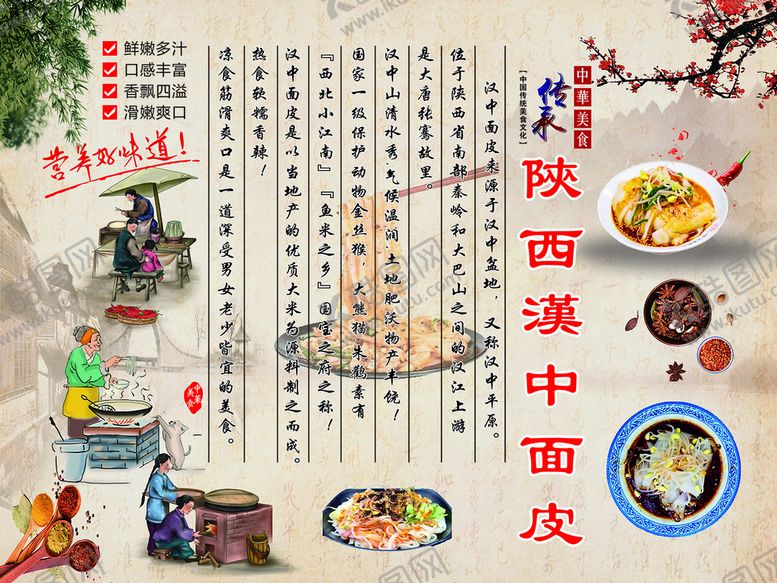 鲜嫩多汁
口感丰富
香飘四溢
滑嫩爽口
营养好味道！
中華美食
传承
【中国传统美食文化】
陝西漢中面皮
汉中面皮来源于汉中盆地，又称汉中平原。
位于陕西省南部秦岭和大巴山之间的汉江上游
是大唐张骞故里。
汉中山清水秀，气候温润，土地肥沃物产丰饶！
国家一级保护动物金丝猴，大熊猫，朱鹮素有
『西北小江南』『鱼米之乡』国宝之府之称！
汉中面皮是以当地产的优质大米为源料制之而成。
热食软糯香辣！
凉食筋滑爽口是一道深受男女老少皆宜的美食。
中華美食